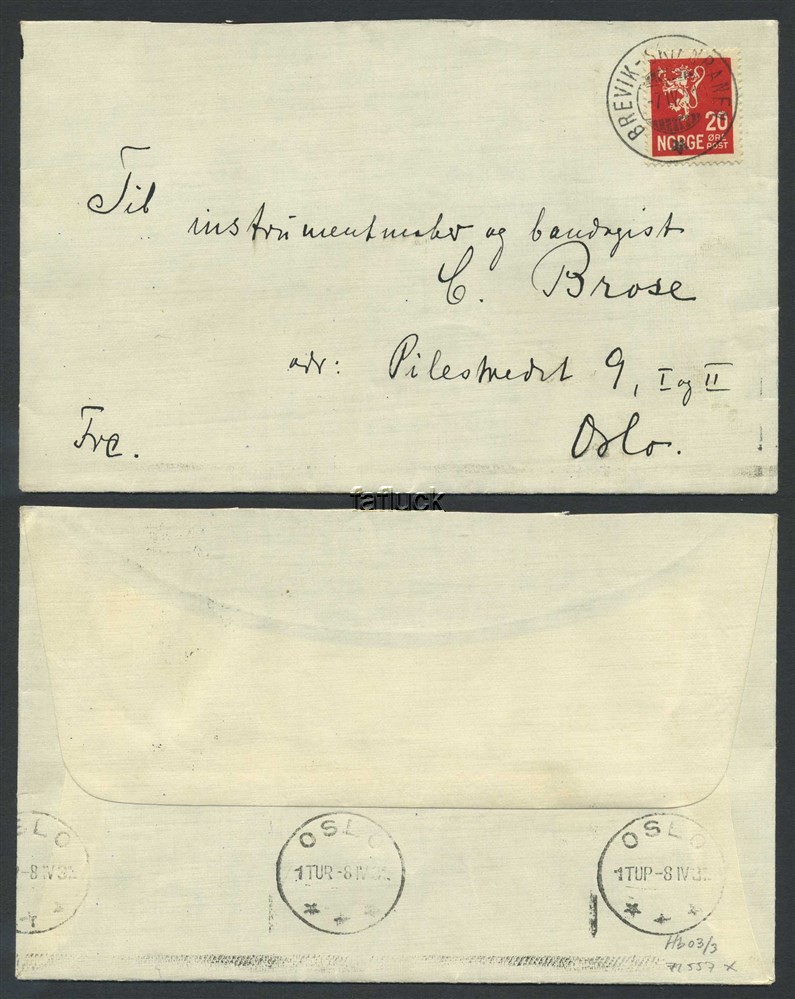 BREVIK-
20
NORGE ØRE POST
Til
instrumentmaker og bandagist
C. Brose
adr: Pilestredet 9, I og II
Frc. Oslo.
fafluck
SLO
OSLO
OSLO
-8 IV 3
1 TUR -8 IV 3
1 TUR -8 IV 3
Hb03/3
71557 x